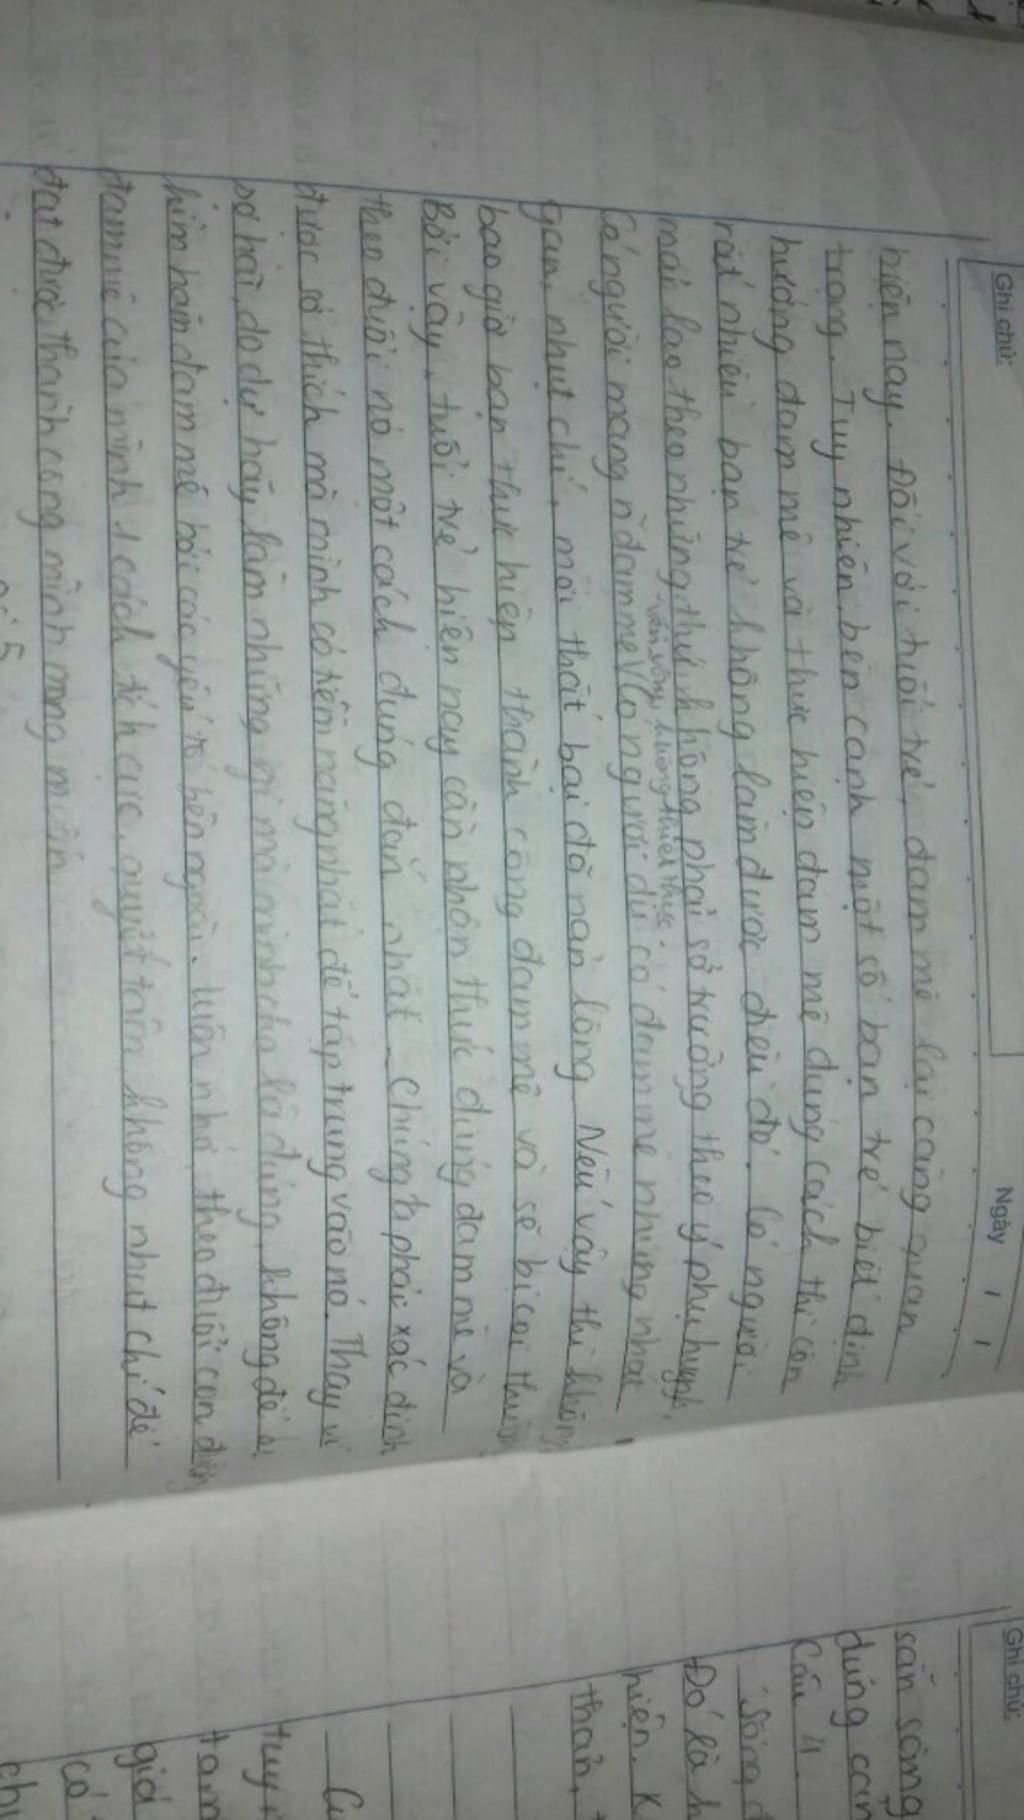 Ghi chú:
Ngày / /
hiện nay. Đối với tuổi trẻ, đam mê lại càng quan
trọng. Tuy nhiên, bên cạnh một số bạn trẻ biết định
hướng đam mê và thực hiện đam mê đúng cách thì còn
rất nhiều bạn trẻ không làm được điều đó. Có người
mải lao theo những thứ không phải sở trường theo ý phụ huynh,
viển vông, không thiết thực.
Có người mang đam mê Có người dù có đam mê nhưng nhát
gan, nhụt chí, mới thất bại đã nản lòng. Nếu vậy thì không
bao giờ bạn thực hiện thành công đam mê và sẽ bị coi thường
Bởi vậy, tuổi trẻ hiện nay cần nhận thức đúng đam mê và
theo đuổi nó một cách đúng đắn nhất. Chúng ta phải xác định
được sở thích mà mình có tiềm năng nhất để tập trung vào nó. Thay vì
sợ hãi, do dự hãy làm những gì mà mình cho là đúng, không để ai
kìm hãm đam mê bởi các yếu tố bên ngoài. Luôn nhớ, theo đuổi con đường
đam mê của mình 1 cách tích cực, quyết tâm không nhụt chí để
đạt được thành công mình mong muốn
Ghi chú:
sẵn sàng
đúng
Câu 4
Sống
Đó là h
hiện. K
thân,
tuy
tam
giá
có